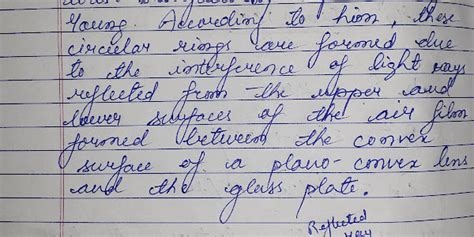 Young. According to him, these
circular rings are formed due
to the interference of light rays
reflected from the upper and
lower surfaces of the air film
formed between the convex
surface of a plano-convex lens
and the glass plate.
Reflected
ray